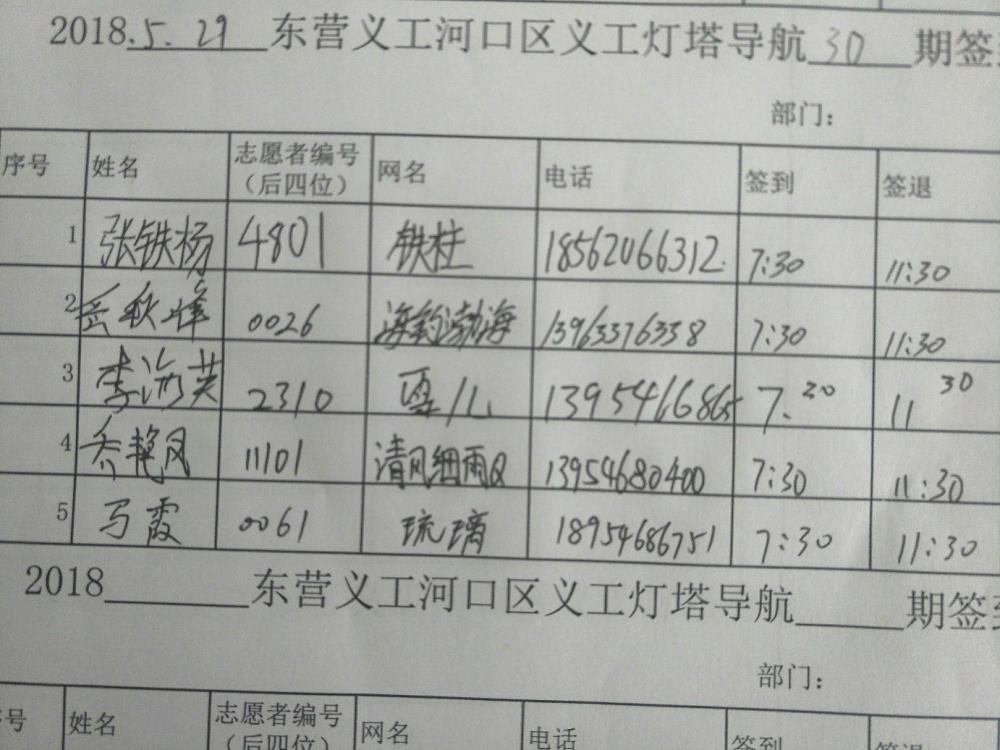 2018.5.29 东营义工河口区义工灯塔导航30期签
部门：
序号 姓名 志愿者编号（后四位） 网名 电话 签到 签退
1 张铁杨 4801 铁柱 18562066312. 7:30 11:30
2 岳秋峰 0026 海钓渤海 13963376338 7:30 11:30
3 李海英 2310 雪儿 13954616865 7.30 11 30
4 乔艳凤 11101 清风细雨Q 13954680400 7:30 11:30
5 马霞 0061 琉璃 18954686751 7:30 11:30
2018 东营义工河口区义工灯塔导航 期签
部门：
号 姓名 志愿者编号（后四位） 网名 电话 签到 签退